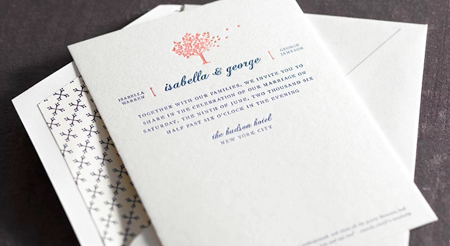 isabella & george
ISABELLA
WERREN
GEORGE
JAMESON
TOGETHER WITH OUR FAMILIES, WE INVITE YOU TO
SHARE IN THE CELEBRATION OF OUR MARRIAGE ON
SATURDAY, THE NINTH OF JUNE, TWO THOUSAND SIX
HALF PAST SIX O'CLOCK IN THE EVENING
the hudson hotel
NEW YORK CITY